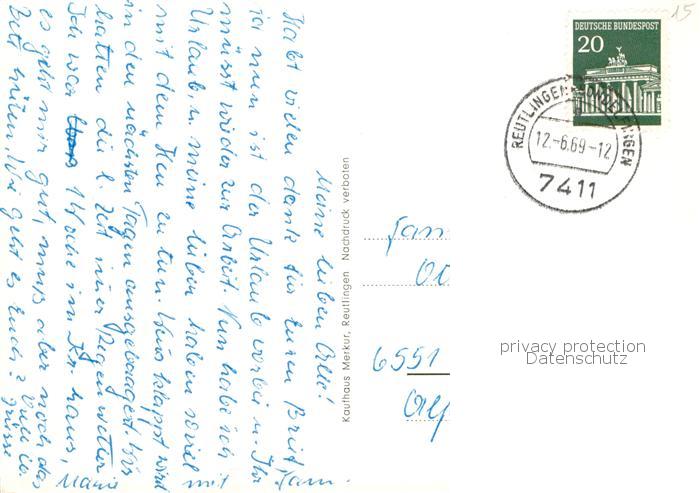 Meine lieben Alle!
Habt vielen dank für euren Brief
ja nun ist der Urlaub vorbei u. Ihr
müsst wieder zur Arbeit. Nun habe ich
Urlaub u. meine lieben haben soviel mit
mit dem Heu zu tun. Heus klappt wird
in den nächsten Tagen
hatten die l. Zeit nur Regenwetter
Ich war 1 Woche im Kr. haus,
es geht mir gut, muß aber noch das
Bett hüten. Wie geht es Euch? Viele lb.
Grüsse
Kaufhaus Merkur, Reutlingen Nachdruck verboten
DEUTSCHE BUNDESPOST
20
REUTLINGEN
12.-6.69-12
7411
15
Fam
6551
privacy protection
Datenschutz